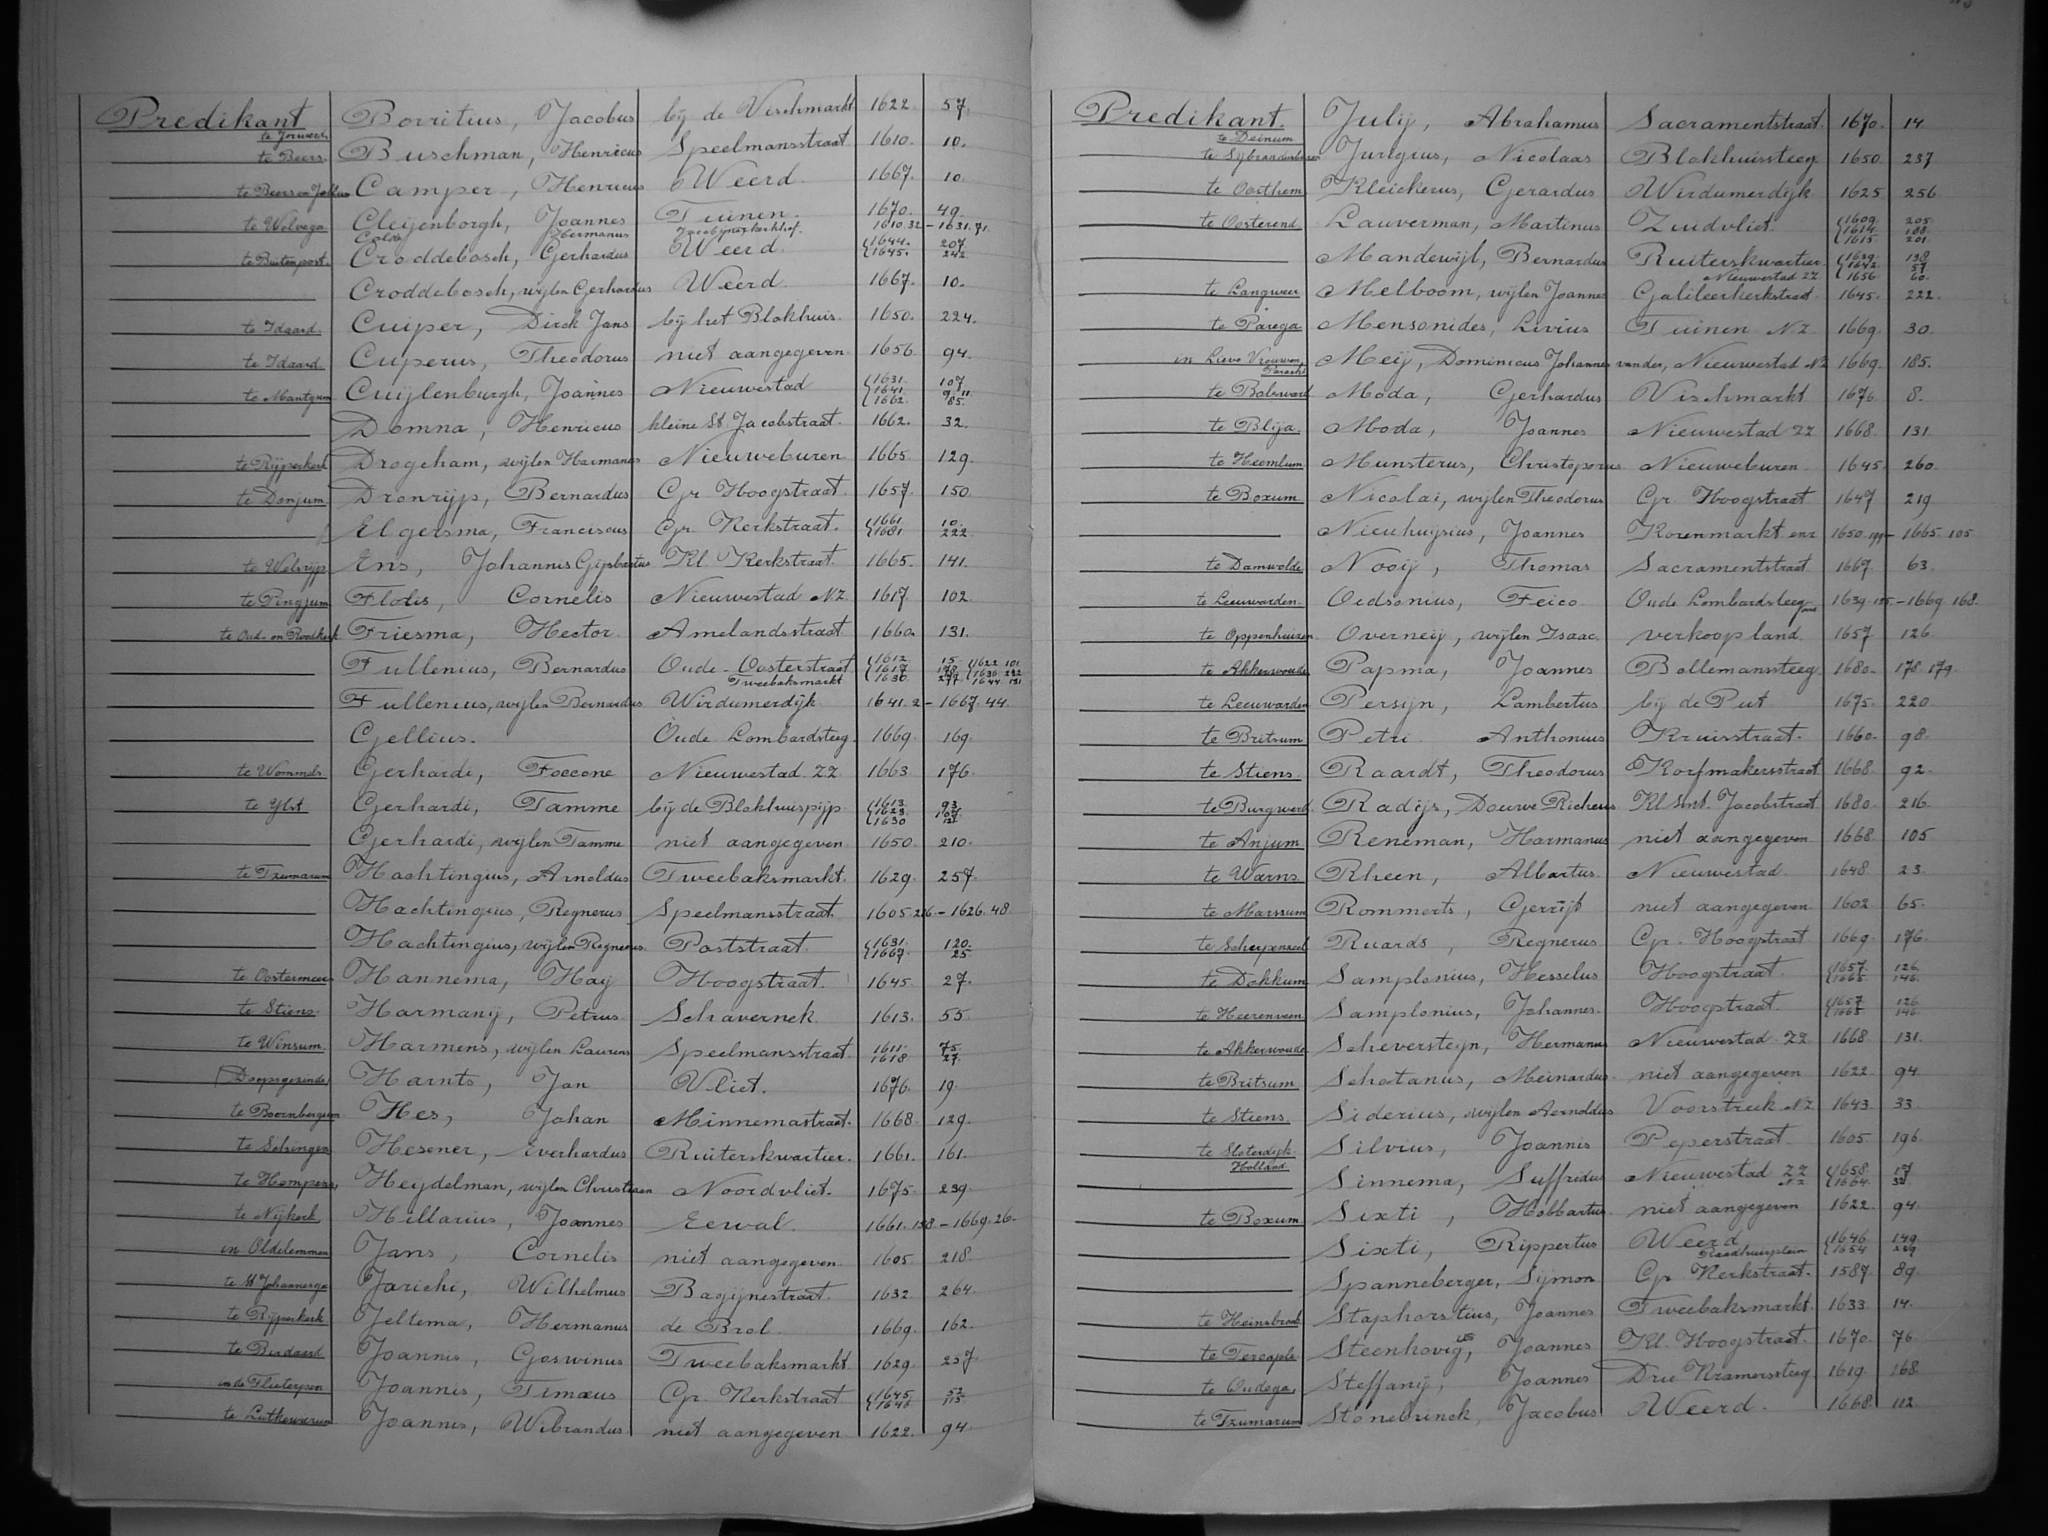 Predikant te Jorwerd Borritius, Jacobus bij de Vischmarkt 1622 57.
te Beers Buschman, Henricus Speelmansstraat 1610. 10.
te Beers en Jellum Camper, Henricus Weerd. 1667. 10.
te Wolvega Cleijenborgh, Joannes Tuinen. 1670. 49.
Hermanus Jacobijnerkerkhof. 1610.32 - 1631.71.
te Buitenpost. Croddebosch, Gerhardus Weerd 1644. 207 1645. 242
Croddebosch, wijlen Gerhardus Weerd. 1667. 10.
te Idaard. Cuiper, Dirck Jans bij het Blokhuis. 1650. 224.
te Idaard Cuperus, Theodorus niet aangegeven 1656 94.
te Mantgum Cuijlenburgh, Joannes Nieuwestad 1631. 107 1641. 9.11 1662. 185.
Domna, Henricus kleine St. Jacobstraat. 1662. 32.
te Rijperkerk Drogeham, wijlen Harmanes Nieuweburen 1665 129.
te Donjum Dronrijp, Bernardus Gr. Hoogstraat. 1657. 150.
Elgersma, Franciscus Gr. Kerkstraat. 1661 10. 1681. 222
te Welsrijp Ens, Johannis Gijsbertus Kl. Kerkstraat. 1665. 141.
te Pingjum Flotis, Cornelis Nieuwestad NZ 1617 102.
te Oud- en Roodkerk Friesma, Hector. Amelandsstraat 1660. 131.
Fullenius, Bernardus Oude-Oosterstraat 1612 15 1622 101
Tweebaksmarkt 1630. 277 1644. 131
Fullenius, wijlen Bernardus Wirdumerdijk 1641.2 - 1667.44.
Gellius. Oude Lombardsteeg. 1669. 169.
te Wommels Gerhardi, Foecone Nieuwestad ZZ 1663 176.
te Ylst Gerhardi, Tamme bij de Blokhuispijp. 1613. 93 1623. 107 1630 121
Gerhardi, wijlen Tamme niet aangegeven 1650. 210.
te Tzumarum Hachtingius, Arnoldus Tweebaksmarkt. 1629. 257.
Hachtingius, Regnerus Speelmansstraat. 1605.226 - 1626.48.
Hachtingius, wijlen Regnerus. Poststraat. 1631. 120. 1667. 25.
te Oostermeer Hannema, Haij Hoogstraat. 1645 27.
te Stiens. Harmanij, Petrus Schavernek. 1613. 55.
te Winsum Harmens, wijlen Laurens Speelmansstraat. 1611. 75. 1618 27.
(Doopsgezinde) Harnts, Jan Vliet. 1676. 19.
te Boornbergum Hes, Johan Minnemastraat. 1668. 129.
te Schingen Hesener, Everhardus Ruiterskwartier. 1661. 161.
te Hempens, Heijdelman, wijlen Christiaan Noordvliet. 1675. 239.
te Nijkerk Hillarius, Joannes Eewal. 1661.158 - 1669.26.
in Oldelemmen Jans, Cornelis niet aangegeven. 1605 218.
te St Johannesga Jarichi, Wilhelmus Bagijnestraat. 1632. 264.
te Rijperkerk Jeltema, Hermanus de Brol. 1669. 162.
te Birdaard Joannis, Goswinus Tweebaksmarkt. 1629. 257.
in de Flieterpen Joannis, Timaeus Gr. Kerkstraat 1645 52 1646 115
te Lutkewierum Joannis, Wibrandus niet aangegeven 1622. 94.
Predikant. te Deinum Julij, Abrahamus Sacramentstraat. 1670. 14.
te Sijbrandaburen Jurigius, Nicolaas Blokhuissteeg. 1650. 237
te Oosthem Kleickerus, Gerardus Wirdumerdijk 1625 256.
te Oosterend Lauverman, Martinus Zuidvliet. 1609. 205 1614. 188 1615 201
Mandewijl, Bernardus Ruiterskwartier. 1639. 138 1642. 57
Nieuwestad ZZ 1656 60.
te Langweer Melboom, wijlen Joannes Galileerkerkstraat. 1645. 222.
te Parega Mensonides, Livius Tuinen NZ 1669. 30.
in Lieve Vrouwen Parochie Meij, Dominicus Johannes vander, Nieuwestad NZ 1669. 185.
te Bolsward Moda, Gerhardus Vischmarkt 1676 8.
te Blija Moda, Joannes Nieuwestad ZZ 1668. 131.
te Heemlum Munsterus, Christoporus Nieuweburen 1645. 260.
te Boxum Nicolai, wijlen Theodorus Gr. Hoogstraat 1647 219.
Nieuhuijsius, Joannes Korenmarkt enz 1650.199 - 1665.105.
te Damwolde Nooij, Thomas Sacramentstraat 1667 63.
te Leeuwarden. Oedsonius, Feico Oude Lombardsteeg 1639.125 - 1669.168.
te Oppenhuizen Overneij, wijlen Isaac. verkoop land. 1657 126.
te Akkerwoude Papma, Joannes Bollemanssteeg 1680. 178.179.
te Leeuwarden Persijn, Lambertus bij de Put 1675. 220.
te Britsum Petri Anthonius Kruisstraat. 1660. 98.
te Stiens. Raardt, Theodorus Korfmakersstraat 1668. 92.
te Burgwerd Radijs, Douwe Richeus Kl. Sint. Jacobstraat. 1680. 216.
te Anjum Reneman, Harmanus niet aangegeven 1668. 105
te Warns Rheen, Albartus. Nieuwestad. 1648 23.
te Marssum Rommerts, Gerrijt niet aangegeven 1602 65.
te Scherpenzeel Ruards, Regnerus Gr. Hoogstraat 1669. 176.
te Dokkum Samplonius, Hesselus Hoogstraat. 1657. 126. 1665 146.
te Heerenveen Samplonius, Johannes. Hoogstraat. 1657 126 1665 146
te Akkerwoude Scheversteijn, Hermanus Nieuwestad ZZ 1668 131.
te Britsum Schotanus, Meinardus. niet aangegeven 1622 94
te Stiens. Siderius, wijlen Aernoldus Voorstreek NZ 1643 33.
te Sloterdijk Holland Silvius, Joannis Peperstraat. 1605. 196.
Sinnema, Suffridus Nieuwestad ZZ NZ 1658. 17 1664. 32
te Boxum Sixti, Hobbartus. niet aangegeven 1622. 94.
Sixti, Rippertus Weerd 1646 149
Raadhuisplein 1654 229
Spanneberger, Sijmon Gr. Kerkstraat. 1587. 89.
te Heinsbroek Staphorstius, Joannes Tweebaksmarkt. 1633 14.
te Tercaple Steenhovig, Joannes Kl. Hoogstraat. 1670. 76
te Oudega, Steffanij, Joannes Drie Kramerssteeg. 1619. 168
te Tzumarum Stonebrinck, Jacobus Weerd. 1668. 112.